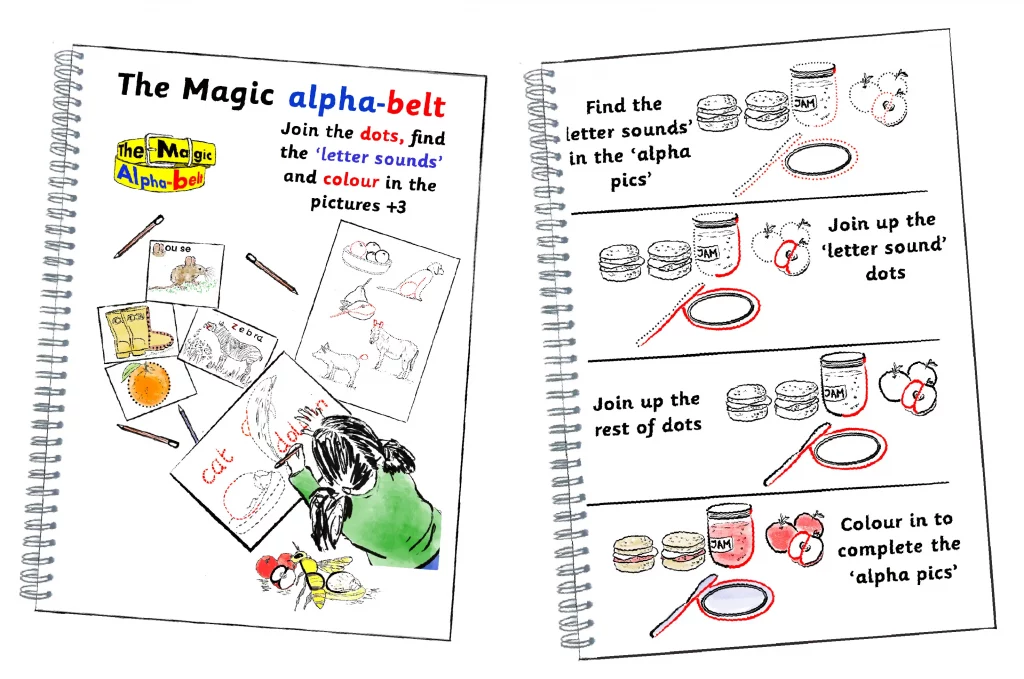 The Magic alpha-belt
Join the dots, find
the ‘letter sounds’
and colour in the
pictures +3
The Magic
Alpha-belt
ouse
zebra
cat
dol
Find the
letter sounds’
in the ‘alpha
pics’
JAM
Join up the
‘letter sound’
dots
JAM
Join up the
rest of dots
JAM
Colour in to
complete the
‘alpha pics’
JAM